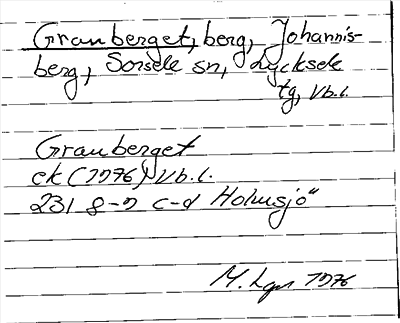 Granberget, berg, Johannis-
berg, Sorsele sn, Lycksele
tg, Vb.l.
Granberget
ek (1976) Vb.l.
231 8-9 c-d
M. 1976